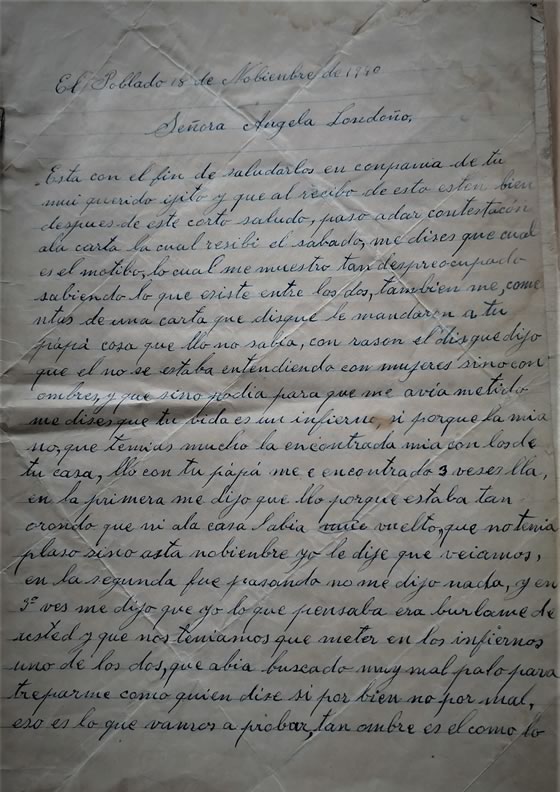 El Poblado 18 de Nobienbre de 1940
Señora Angela Londoño,
Esta con el fin de saludarlos en conpania de tu
mui querido ijito y que al recibo de esta esten bien
despues de este corto saludo, paso adar contestación
ala carta la cual resibi el sabado, me dises que cual
es el motibo, lo cual me muestro tan despreocupado
sabiendo lo que esiste entre los dos, tambien me, come
ntas de una carta que disque le mandaron a tu
pápá cosa que llo no sabia, con rason el disque dijo
que el no se estaba entendiendo con mujeres sino con
ombres, y que sino podia para que me avia metido
me dises que tu bida es un infierno, si porque la mia
no, que temias mucho la encontrada mia con los de
tu casa, llo con tu pápá me e encontrado 3 veses lla,
en la primera me dijo que llo porque estaba tan
orondo que ni ala casa abia vuelto, que no tenia
plaso sino asta nobienbre yo le dije que veiamos,
en la segunda fue pasando no me dijo nada, y en
3ª ves me dijo que yo lo que pensaba era burlame de
usted y que nos teniamos que meter en los infiernos
uno de los dos, que abia buscado muy mal palo para
treparme como quien dise si por bien no por mal,
eso es lo que vamos a probar, tan ombre es el como lo